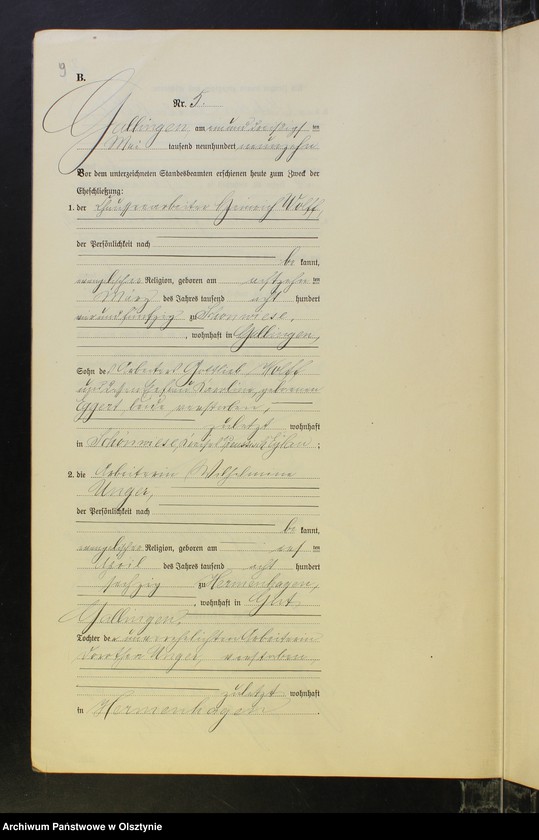 9
B.
Nr. 5.
Gallingen am einunddreißigsten
Mai tausend neunhundert neunzehn
Vor dem unterzeichneten Standesbeamten erschienen heute zum Zweck der
Eheschließung:
1. der Heinrich Wolff,
der Persönlichkeit nach
be kannt,
evangelischer Religion, geboren am achtzehnten
März des Jahres tausend acht hundert
vierundfünfzig zu Schönwiese,
, wohnhaft in Gallingen,
Sohn des Arbeiters Gottlieb Wolff
und dessen Ehefrau Karoline, geborenen
Eggert beide verstorben,
zuletzt wohnhaft
in Schönwiese, Preußisch Eylau;
2. die Arbeiterin Wilhelmine
Unger,
der Persönlichkeit nach
be kannt,
evangelischer Religion, geboren am elften
April des Jahres tausend acht hundert
sechzig zu Hermenhagen,
, wohnhaft in Gut
Gallingen,
Tochter der unverehelichten Arbeiterin
Dorothea Unger, verstorben
zuletzt wohnhaft
in Hermenhagen.
Archiwum Państwowe w Olsztynie